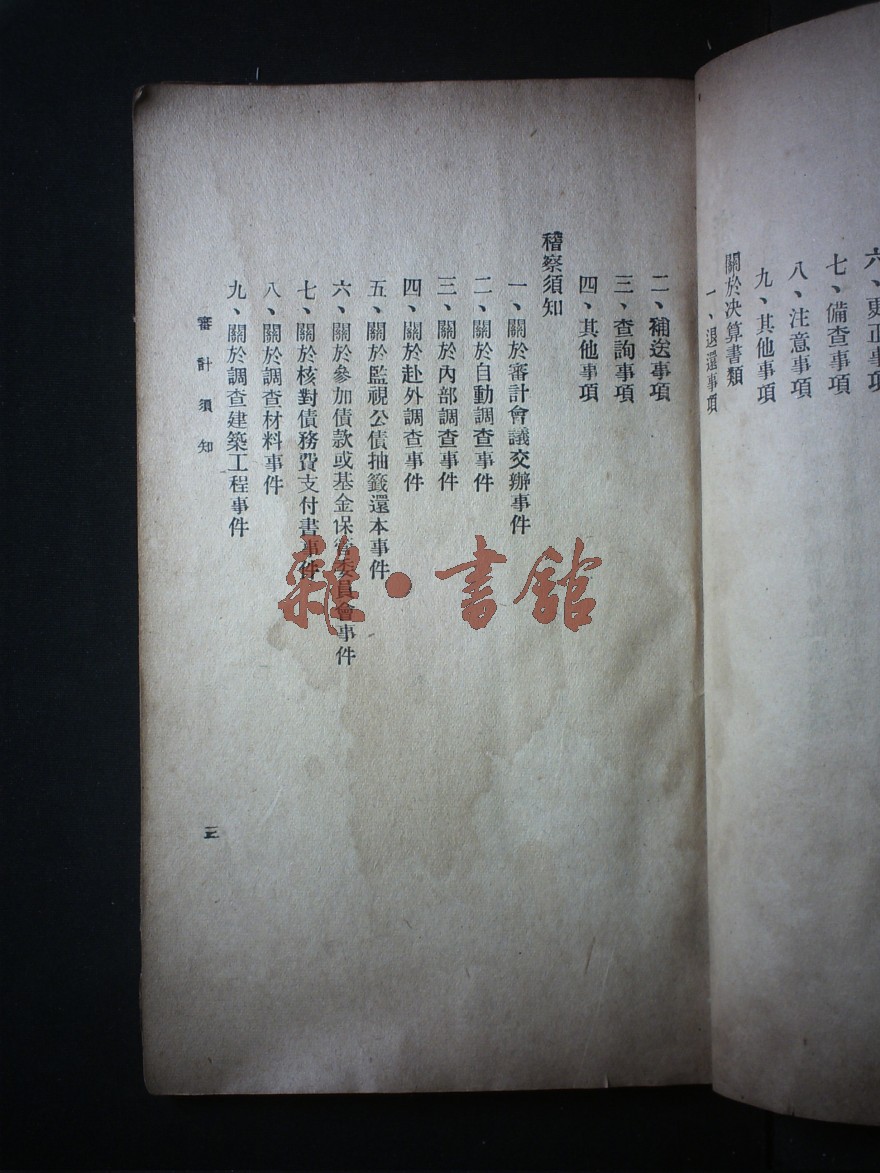 六、更正事項
七、備查事項
八、注意事項
九、其他事項
關於決算書類
一、退還事項
二、補送事項
三、查詢事項
四、其他事項
稽察須知
一、關於審計會議交辦事件
二、關於自動調查事件
三、關於內部調查事件
四、關於赴外調查事件
五、關於監視公債抽籤還本事件
六、關於參加債款或基金保管委員會事件
七、關於核對債務費支付書事件
八、關於調查材料事件
九、關於調查建築工程事件
審計須知
三
雜·書館